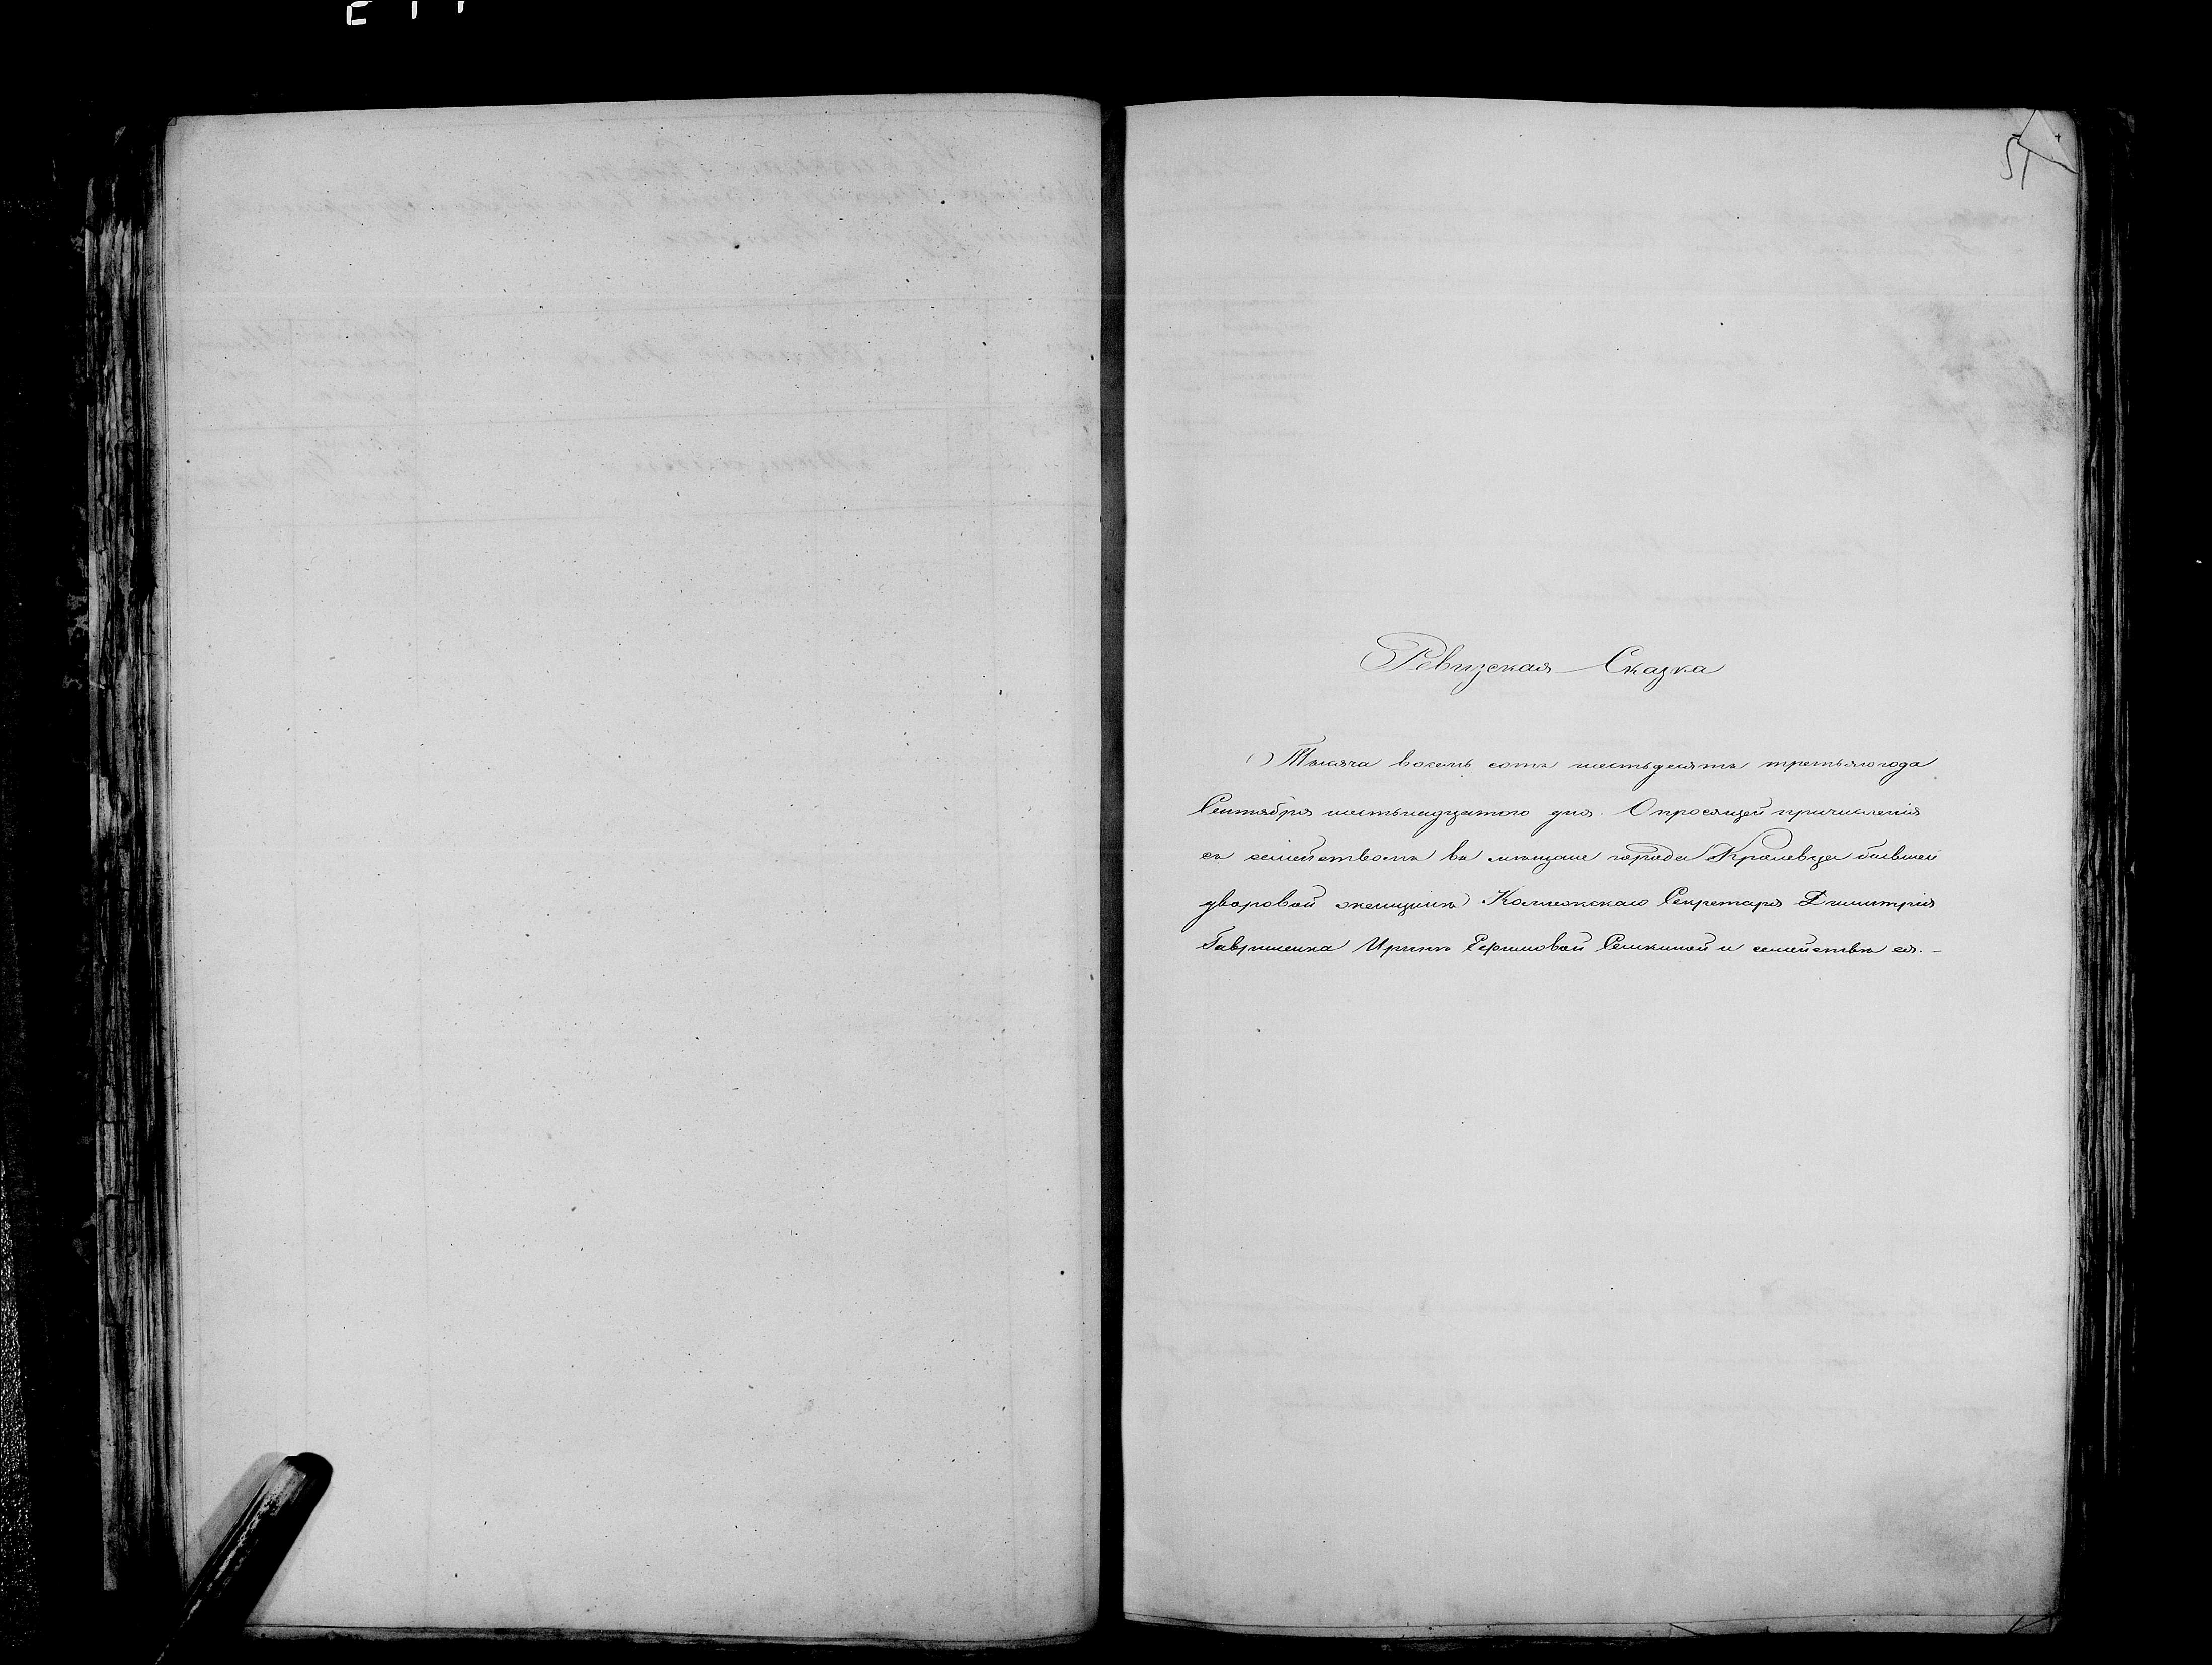 51
Ревизская Сказка
Тысяча восемь сотъ шестьдесятъ третьяго года
Сентября шестьнадцатого дня. О просящей причисленія
съ семействомъ въ мѣщане города Кролевца бывшей
дворовой женщинѣ Коллежскаго Секретаря Димитрія
Гавриленка Иринѣ Ефимовой и семействѣ ея. –